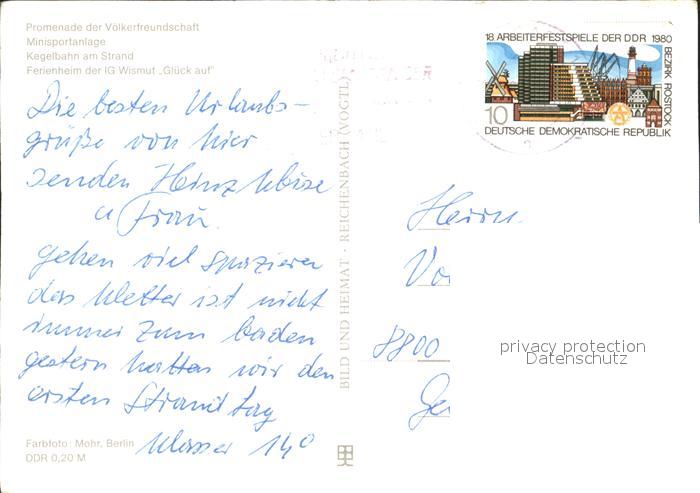 Promenade der Völkerfreundschaft
Minisportanlage
Kegelbahn am Strand
Ferienheim der IG Wismut „Glück auf"
18 ARBEITERFESTSPIELE DER DDR 1980
BEZIRK ROSTOCK
10
DEUTSCHE DEMOKRATISCHE REPUBLIK
Die besten Urlaubs-
grüße von hier
senden Heinz
u Frau.
gehen viel spazieren
das Wetter ist nicht
immer zum baden
gestern hatten wir den
ersten Strandtag
Wasser 14°
BILD UND HEIMAT · REICHENBACH (VOGTL)
Herrn
8800
privacy protection
Datenschutz
Farbfoto: Mohr, Berlin
DDR 0,20 M